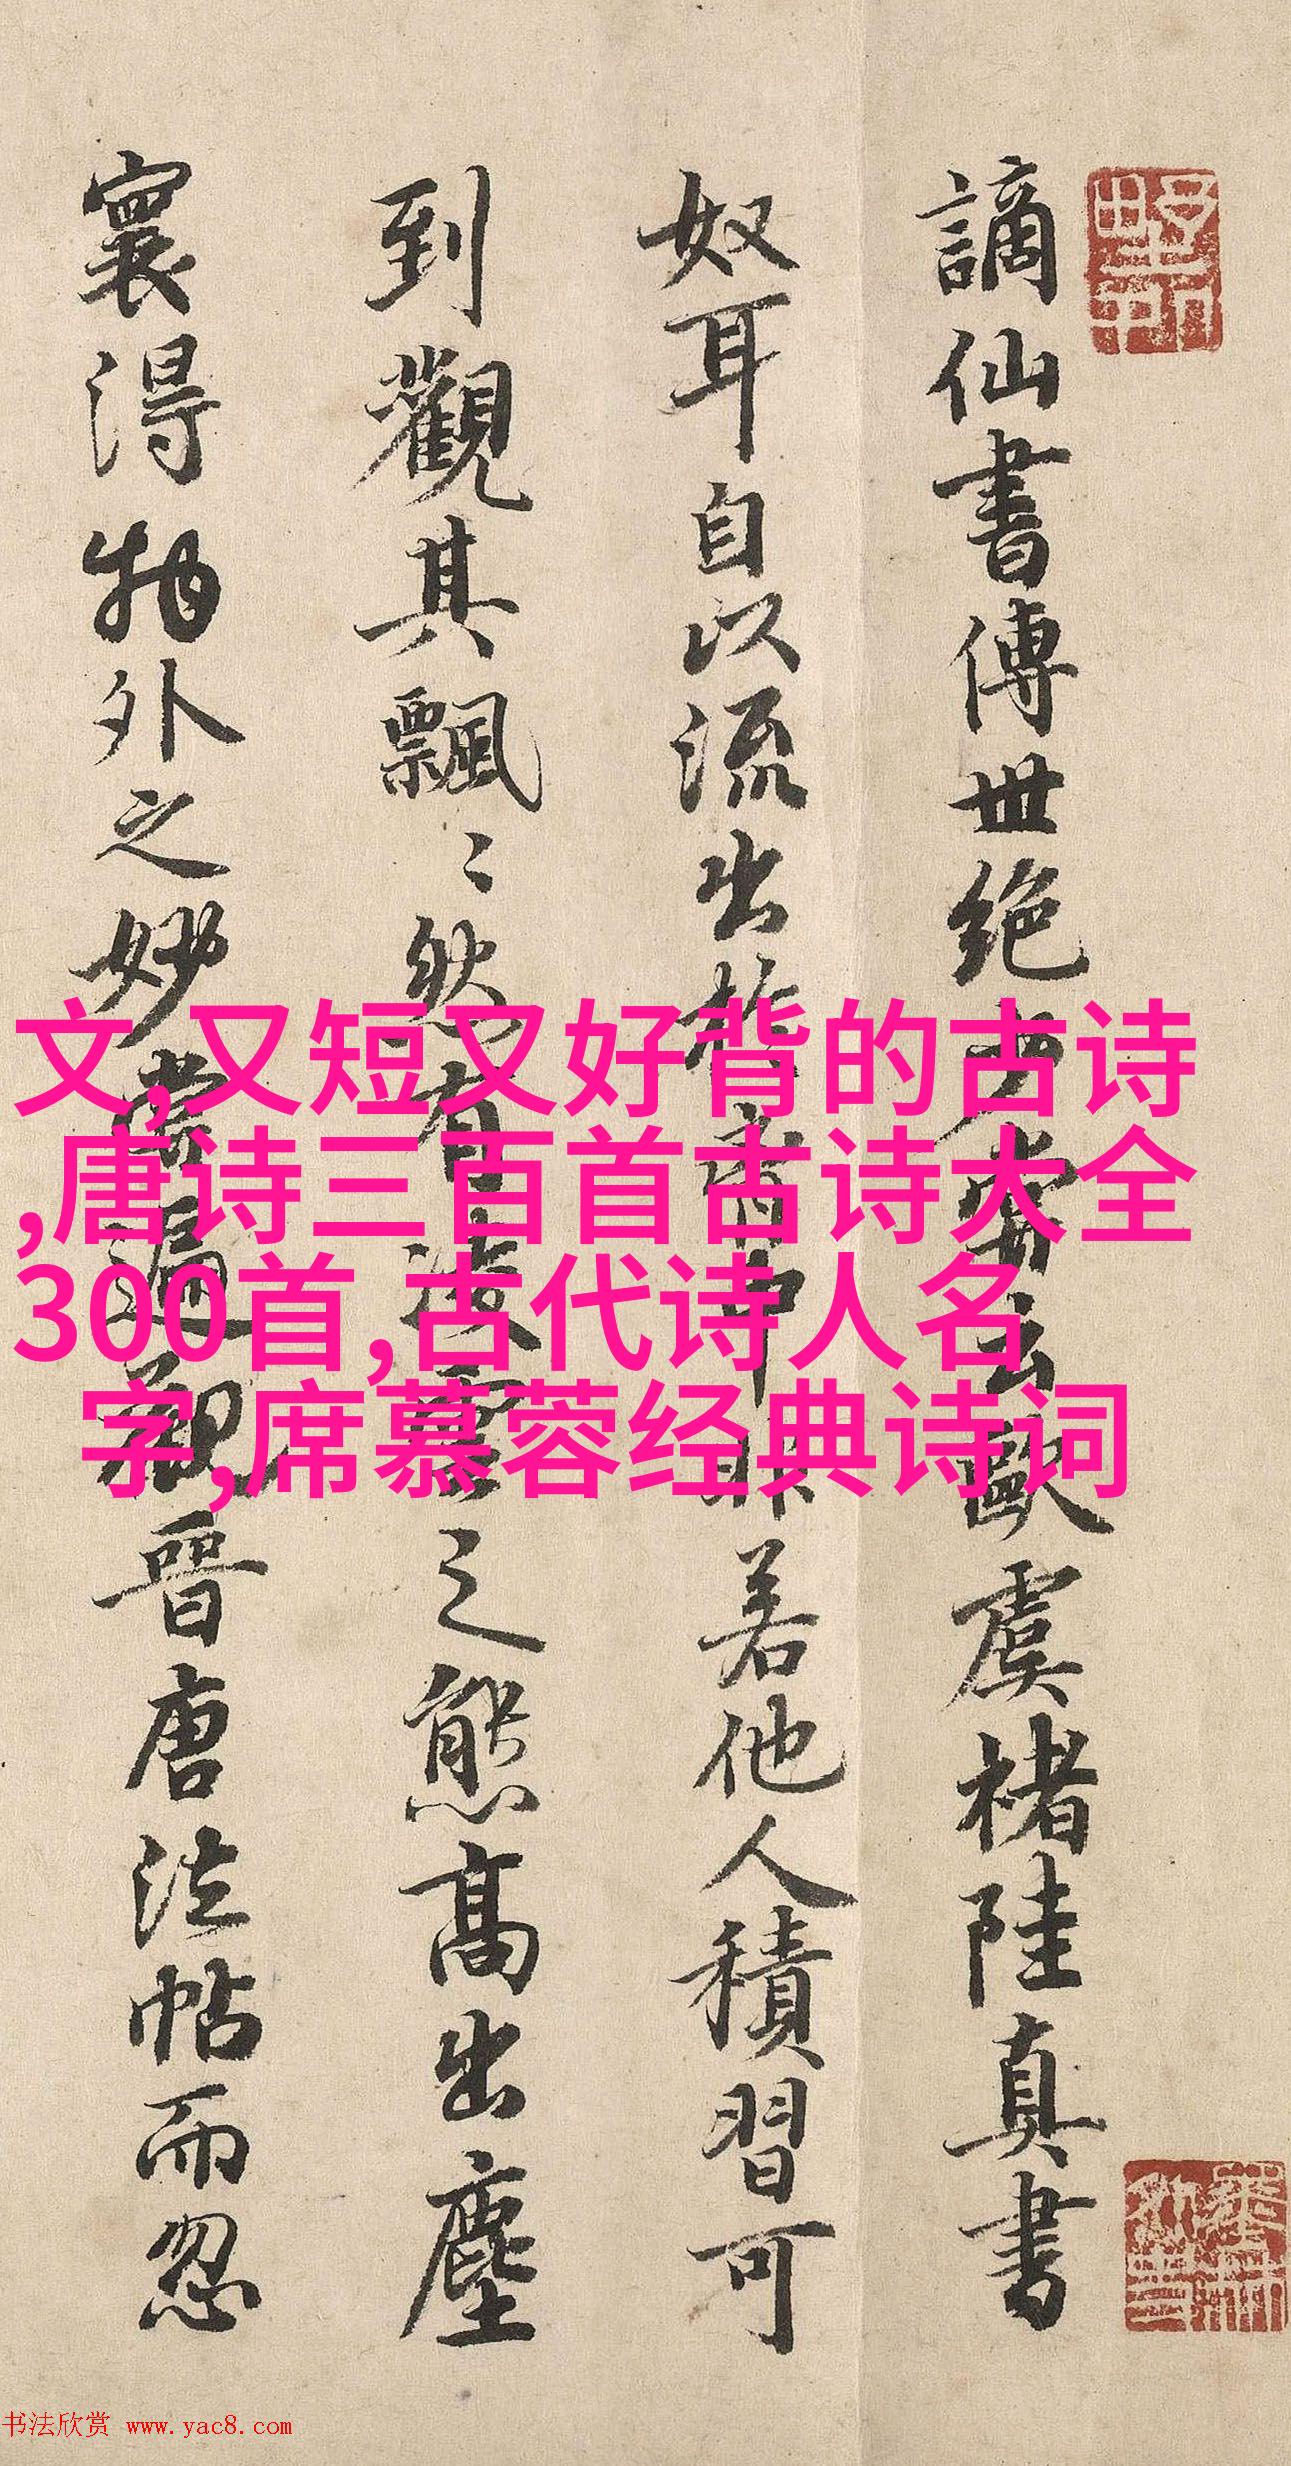 謫仙書傳世絕少嘗云歐虞褚陸真書
奴耳自以流出於胷中非若他人積習可
到觀其飄〻然有凌雲之態高出塵
寰得物外之妙嘗遍觀晉唐法帖而忽
文,又短又好背的古诗
,唐诗三百首古诗大全
300首,古代诗人名
字,席慕蓉经典诗词
书法欣赏 www.yac8.com